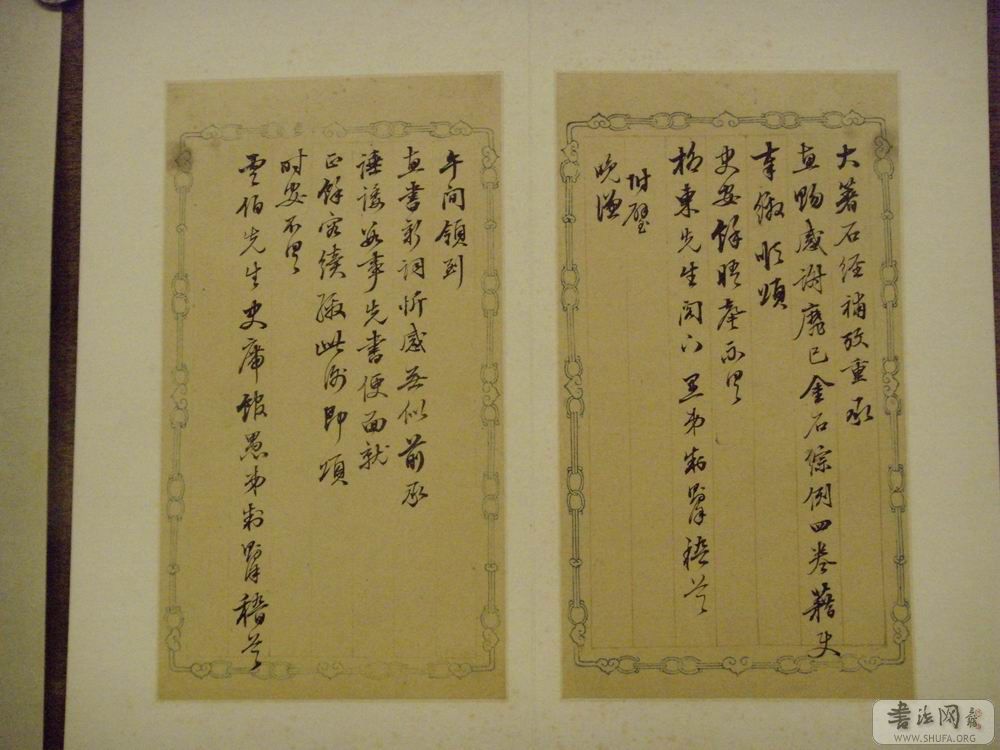 大著石经補攷重承
惠賜感謝靡已金石綜例四卷藉史
奉繳順頌
史安餘晤罄不具
柳東先生閣下 愚弟 制 稽首
附璧
晚謙
午間領到
惠書新詞忻感無似前承
諈諉 先書便面就
正餘容續 此泐即頌
時安不具
雲伯先生史席 館愚弟制 稽首
書法网
WWW.SHUFA.ORG